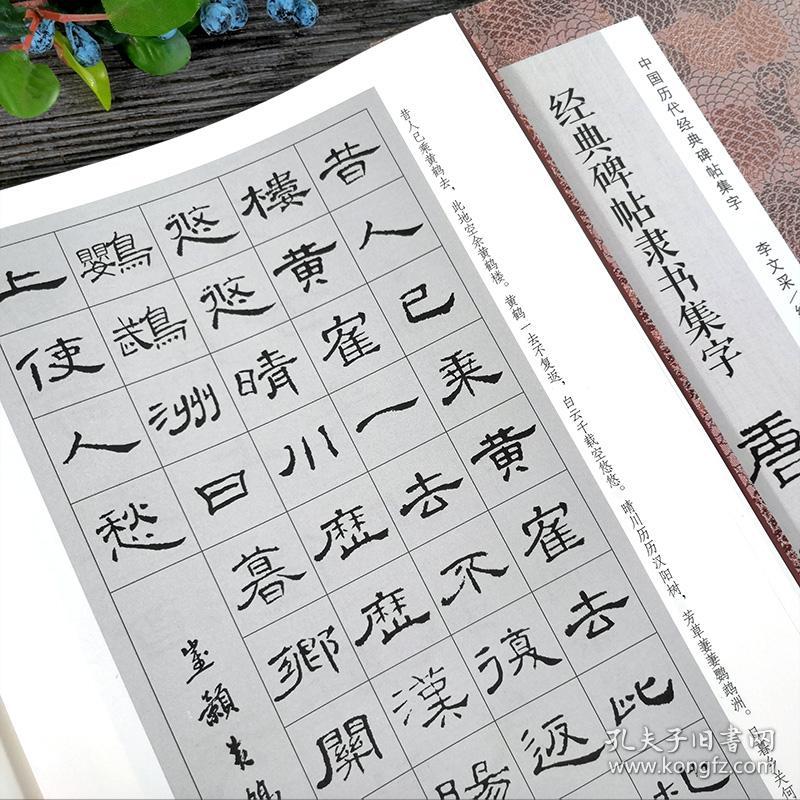 中国历代经典碑帖集字
李文采
经典碑帖隶书集字
唐
昔人已乘黄鹤去，此地空余黄鹤楼。黄鹤一去不复返，白云千载空悠悠。晴川历历汉阳树，芳草萋萋鹦鹉洲。日暮
关何
昔人已乘黄隺去此地
樓黄隺一去不復返
悠悠晴川歷歷漢陽
鸚鵡洲日暮鄉關
上使人愁
崔顥黄鶴
孔夫子旧书网
www.kongfz.com